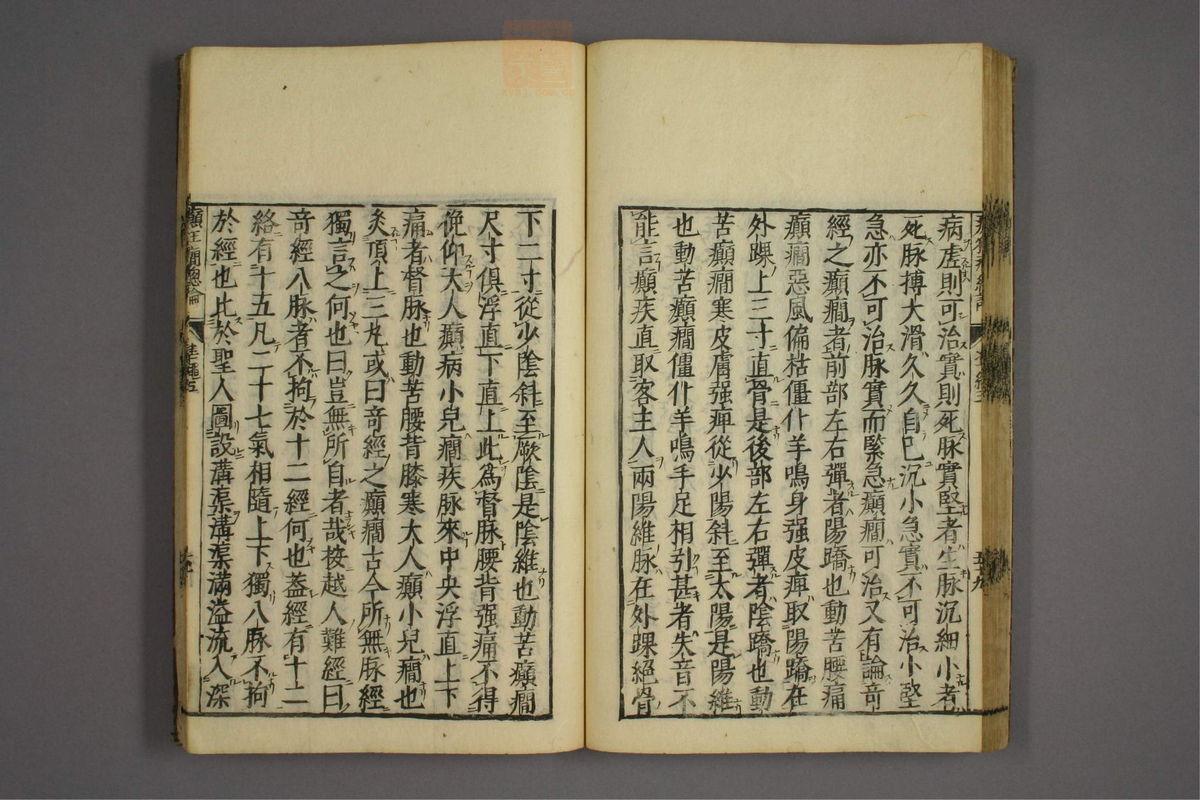 病虛則可治實則死脉實堅者生脉沉細小者
死脉搏大滑久久自已沉小急實不可治小堅
急亦不可治脉實而緊急癲癇可治又有論竒
經之癲癇者前部左右彈者陽蹻也動苦腰痛
癲癇惡風偏枯僵仆羊鳴身强皮痺取陽蹻在
外踝上三寸直骨是後部左右彈者陰蹻也動
苦癲癇寒皮膚强痺從少陽斜至太陽是陽維
也動苦癲癇僵仆羊鳴手足相引甚者失音不
能言癲疾直取客主人兩陽維脉在外踝絕骨
下二寸從少陰斜至厥陰是陰維也動苦癲癇
尺寸俱浮直下直上此為督脉腰背强痛不得
俛仰大人癲病小兒癇疾脉來中央浮直上下
痛者督脉也動苦腰背膝寒大人癲小兒癇也
灸頂上三丸或曰竒經之癲癇古今所無脉經
獨言之何也曰豈無所自者哉按越人難經曰
竒經八脉者不拘於十二經何也盖經有十二
絡有十五凡二十七氣相隨上下獨八脉不拘
於經也比於聖人圖設溝渠溝渠滿溢流入深
癲狂癇總論